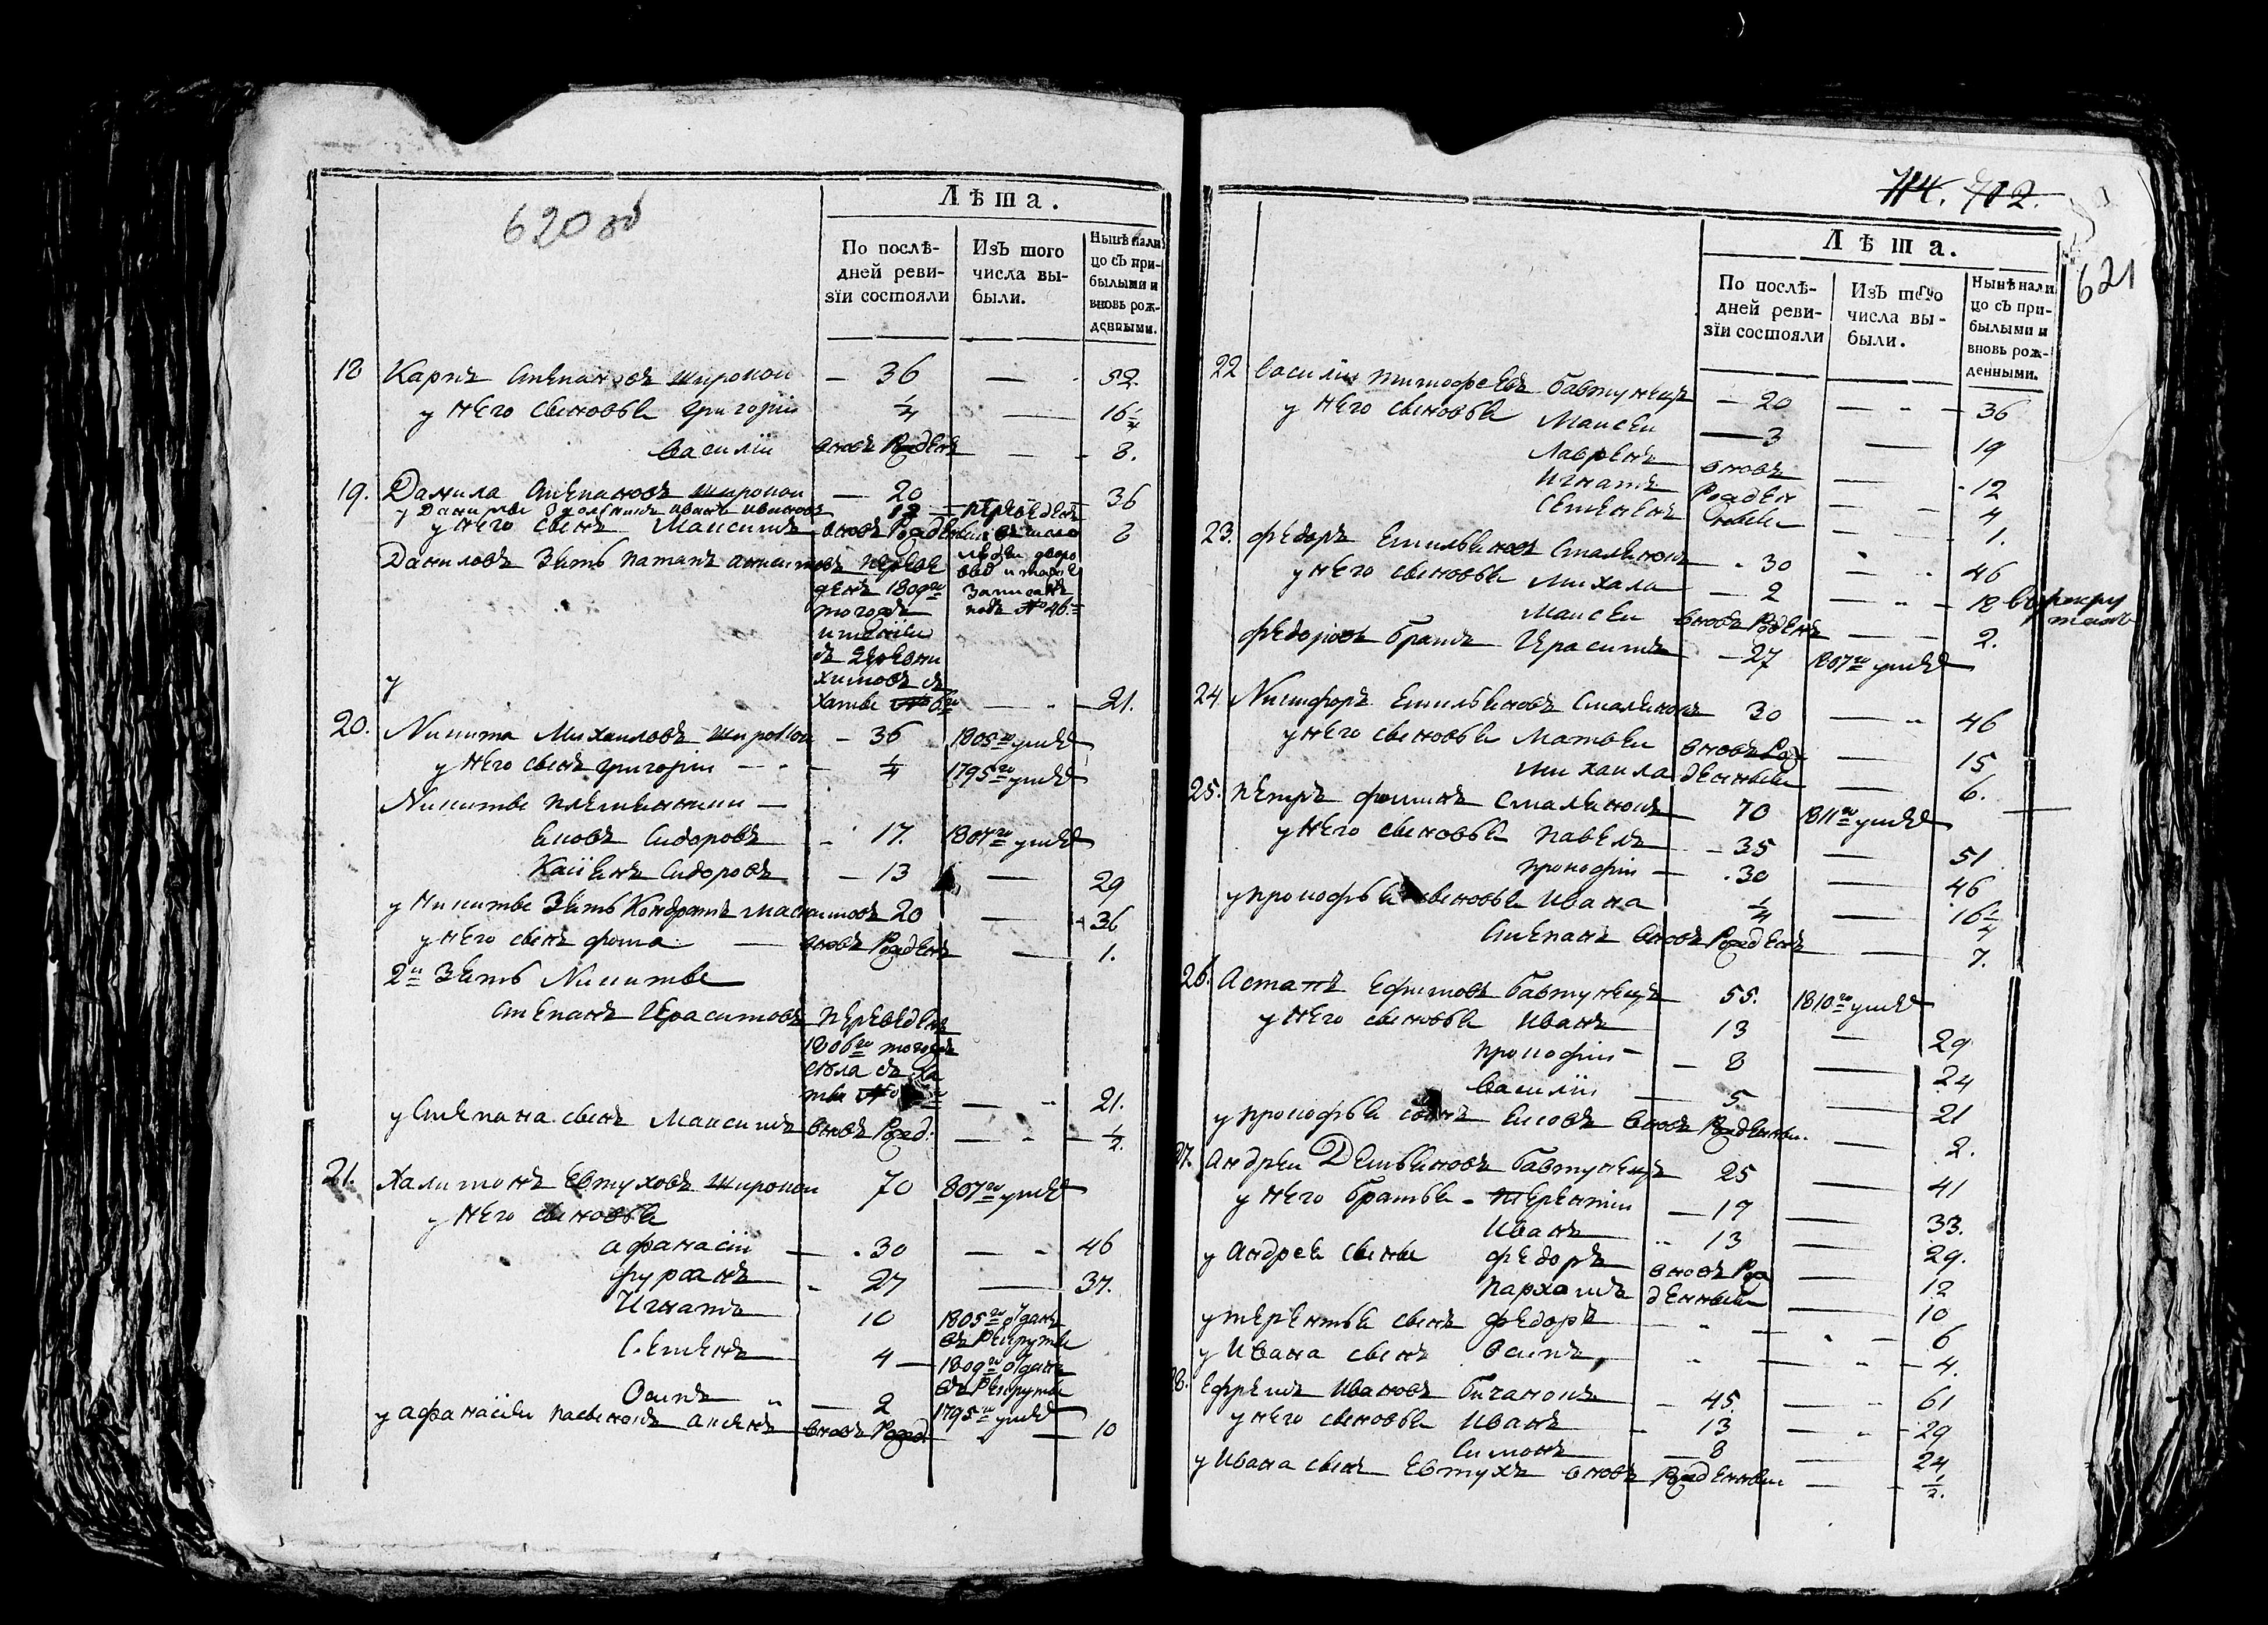 620 об
Лѣта.
По послѣ-
дней реви-
зїи состояли
Изъ того
числа вы-
были.
Нынѣ нали
цо съ при-
былыми и
вновь рож-
денными.
18 Карпъ Степановъ Широкои — 36 — 52.
у него сыновья Григорiи 1/4 — 16 1/4
Василiи вновь Рожденъ — 8.
19. Данила Степановъ Широкои — 20 36
у Данилы Иванъ Ивановъ 12 — переведенъ
у него сынъ Максимъ вновь Рожденъ в число 8
Даниловъ Зять Патапъ Анисимовъ переве людеи дворо
денъ 1809го записанъ
тогожъ подъ № 46.
имѣнiя
съ деревни
Химовъ съ
у
хаты № — 21.
20. Никита Михаиловъ Широкои — 36 1805го умре
у него сынъ Григорiи — 1/4 1795го умре
Никиты племянники —
Яковъ Сидоровъ — 17. 1807го умре
Касiянъ Сидоровъ — 13 — 29
у Никиты Зять Кондратъ Максимовъ 20 — 36
у него сынъ Фома — вновь Рожденъ — 1.
2й Зять Никиты
Степанъ Герасимовъ переведенъ
1806го тогожъ
села съ ха
ты № — 21.
у Степана сынъ Максимъ вновь Рожд: — 1/2.
21. Халимонъ Евтуховъ Широкои 70 807го умре
у него сыновья
Афанасiи — 30 — 46
Фурсанъ — 27 — 37.
Игнатъ 10 1805го отданъ
въ Рекруты
Семенъ 4 — 1809го отданъ
въ Рекруты
Осипъ — 2 1795го умре
у Афанасiя пасынокъ вновь Рожд. — 10
114. 702.
621
Лѣта.
По послѣ-
дней реви-
зїи состояли
Изъ того
числа вы-
были.
Нынѣ нали
цо съ при-
былыми и
вновь рож-
денными.
22 Василiи Тимофеевъ Бавтунецъ — 20 — 36
у него сыновья Маисеи — 3 — 19
Лавренъ вновь — 12
Игнатъ Рожден — 4
Семенъ ныя — 1.
23. Федоръ Емильяновъ Смаляновъ — 30 — 46
у него сыновья Михаила — 2 — 18 в рекру
тахъ
Маисеи вновь Рожденъ — 2.
Федоровъ братъ Герасимъ — 27 1807го умре
24. Никифоръ Емильяновъ Смаляновъ 30 — 46
у него сыновья Матвеи вновь Рож — 15
Михаила денныя — 6.
25. Петръ Фоминъ Смаляновъ — 70 1811го умре
у него сыновья Павелъ — 35 — 51
Прокофiи — 30 — 46
у Прокофья сыновья Ивана 1/4 — 16 1/4
Степанъ вновь Рожденъ — 7.
26. Астапъ Ефимовъ Бавтунецъ 55. 1810го умре
у него сыновья Иванъ 13 — 29
Прокофiи — 8 — 24
Василiи 5 — 21
у Прокофья сынъ Яковъ вновь Рожденныи. — 2.
27. Андреи Демьяновъ Бавтунецъ 25 — 41
у него братья — Терентiи — 19 — 33.
Иванъ 13 — 29.
у Андрея сыны Федоръ вновь Рож — 12
Пархомъ денныя — 10
у Терентья сынъ Федоръ — 6
у Ивана сынъ Осипъ — 4.
28. Ефремъ Ивановъ — 45. — 61
у него сыновья Иванъ — 13 — 29
Симонъ — 8 — 24
у Ивана сынъ Евтухъ вновь Рожденныи — 1/2.